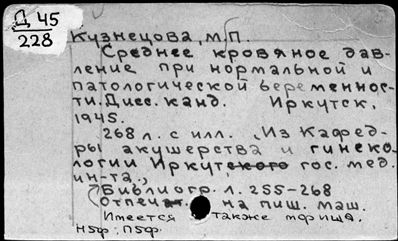 Д 45
228
Кузнецова, М.П.
Среднее кровяное дав-
ление при нормальной и
патологической беременнос-
ти. Дисс. канд. Иркутск,
1945.
268 л. с илл. Из Кафед-
ры акушерства и гинеко-
логии Иркутского гос. мед.
ин-та.,
Библиогр. л. 255-268
Отпечат. на пиш. маш.
Имеется также
Н5ф. П5ф.